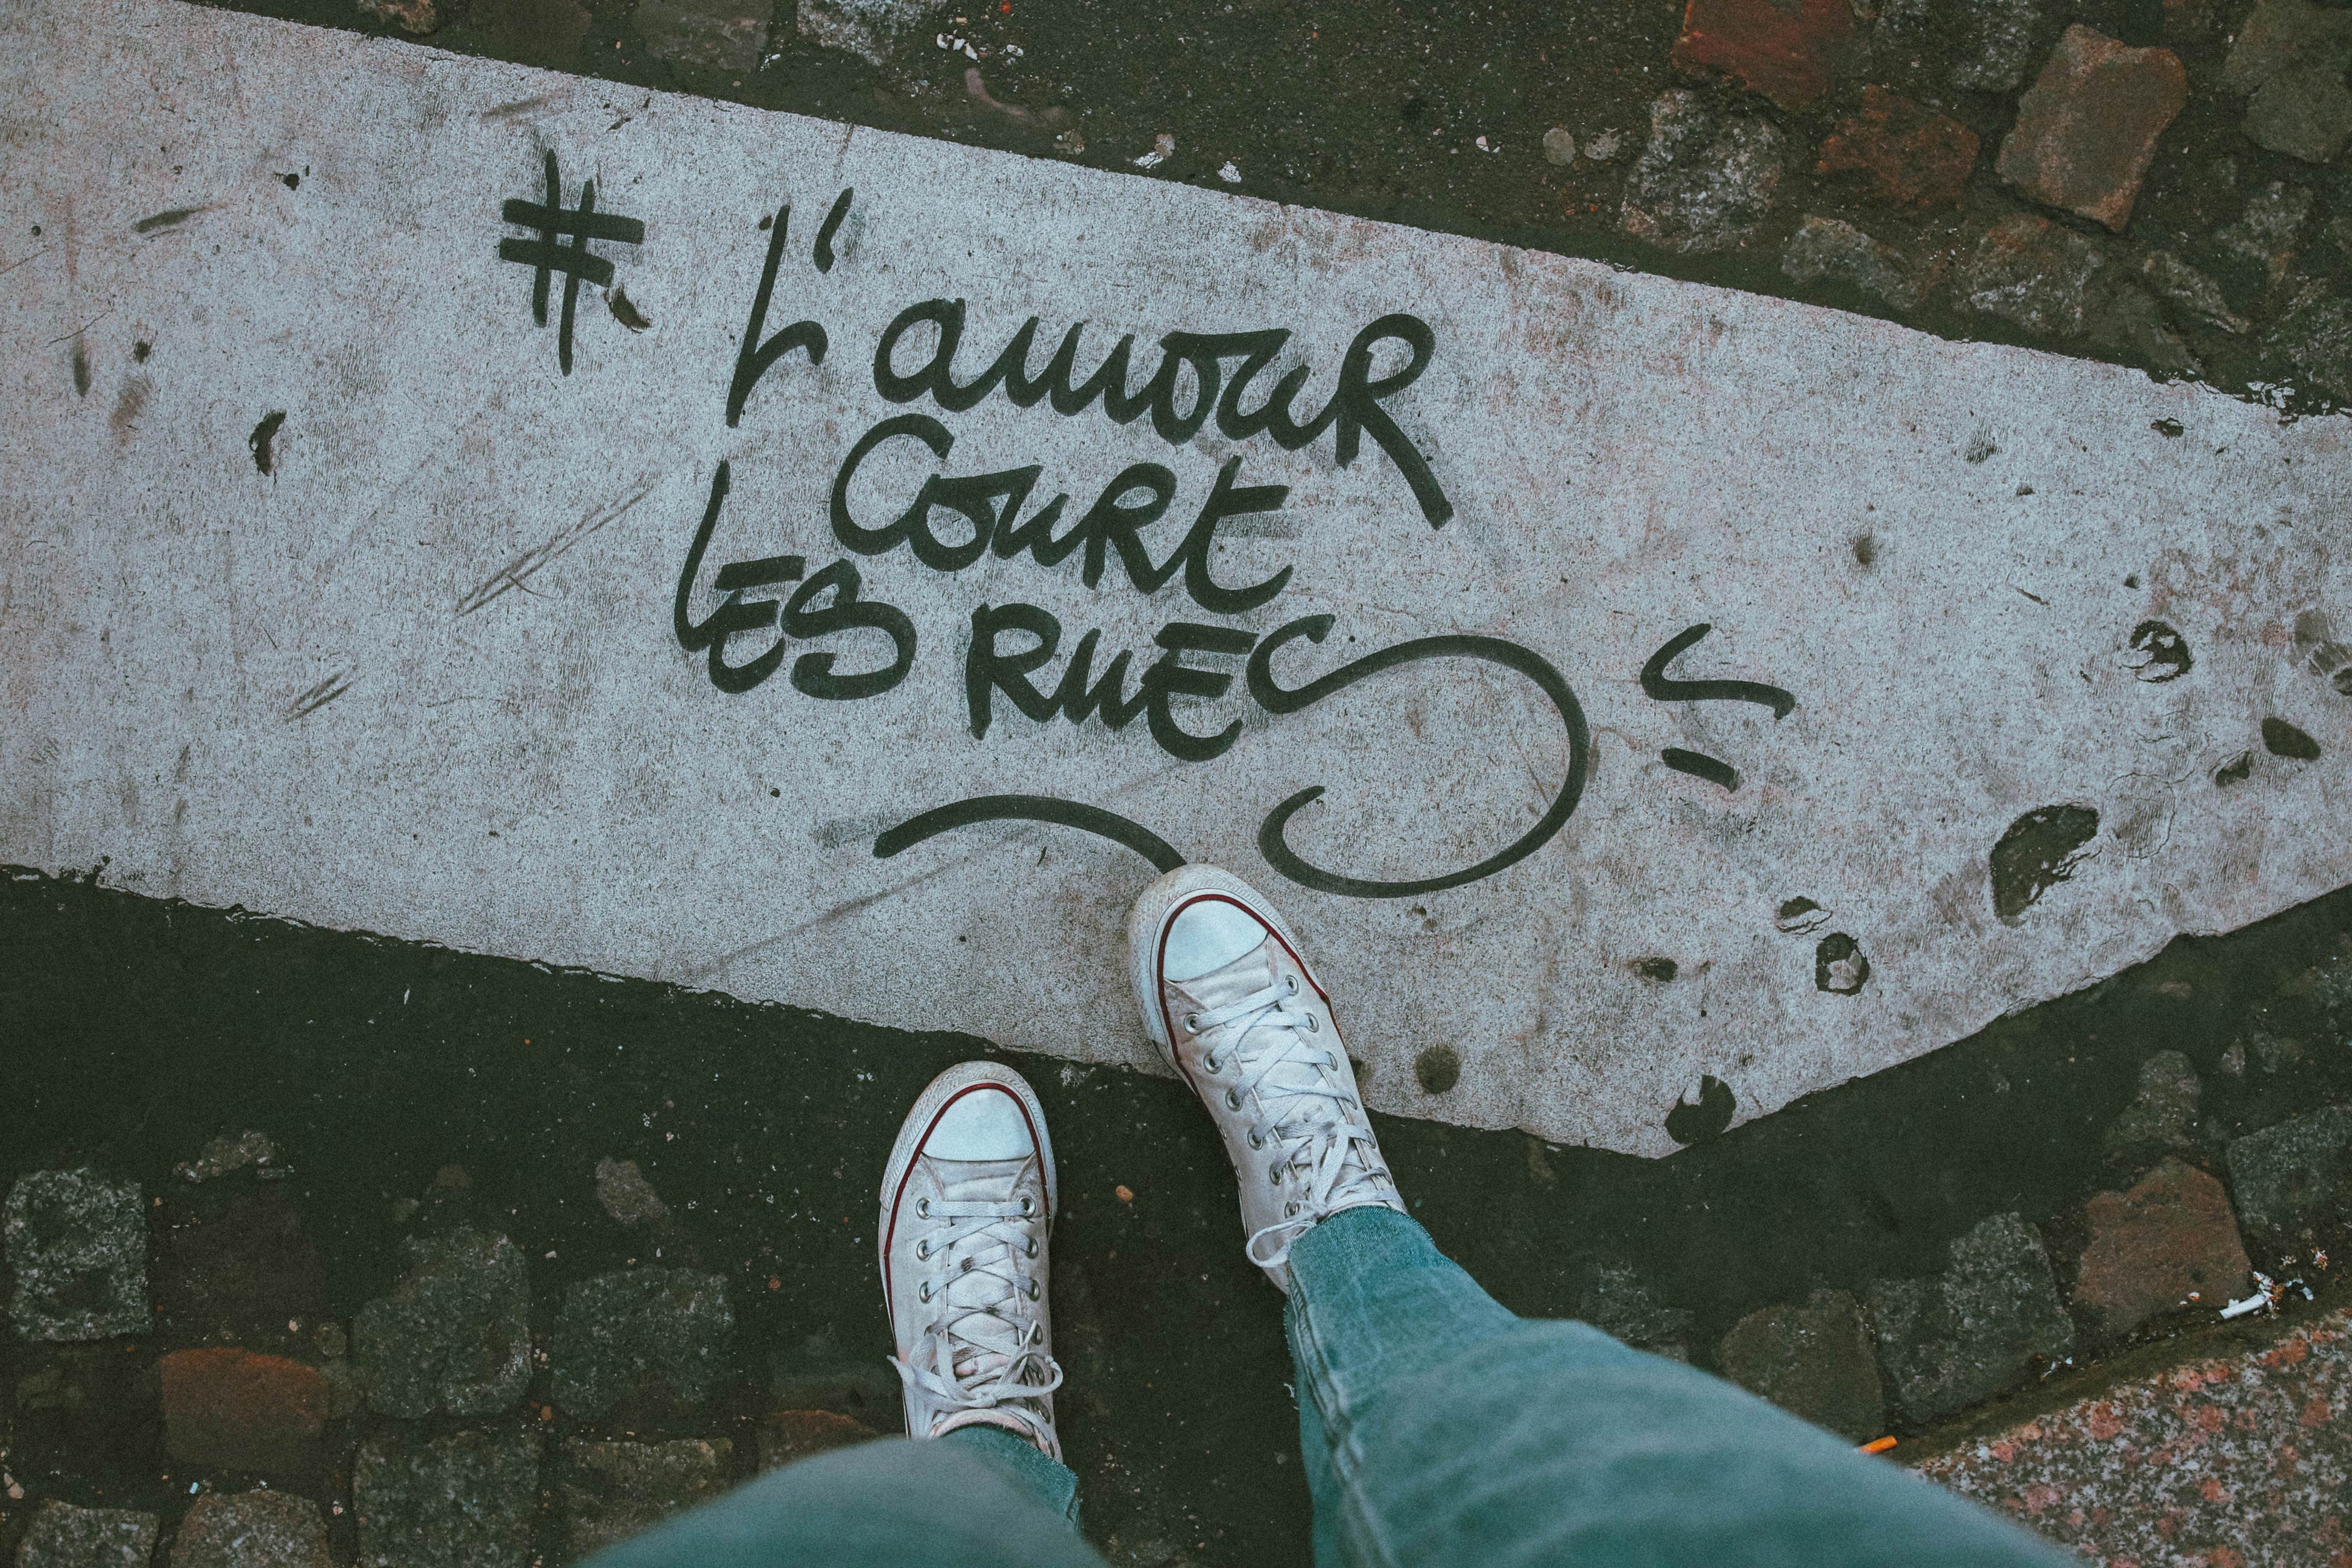 # L'amour
Court
les Rues